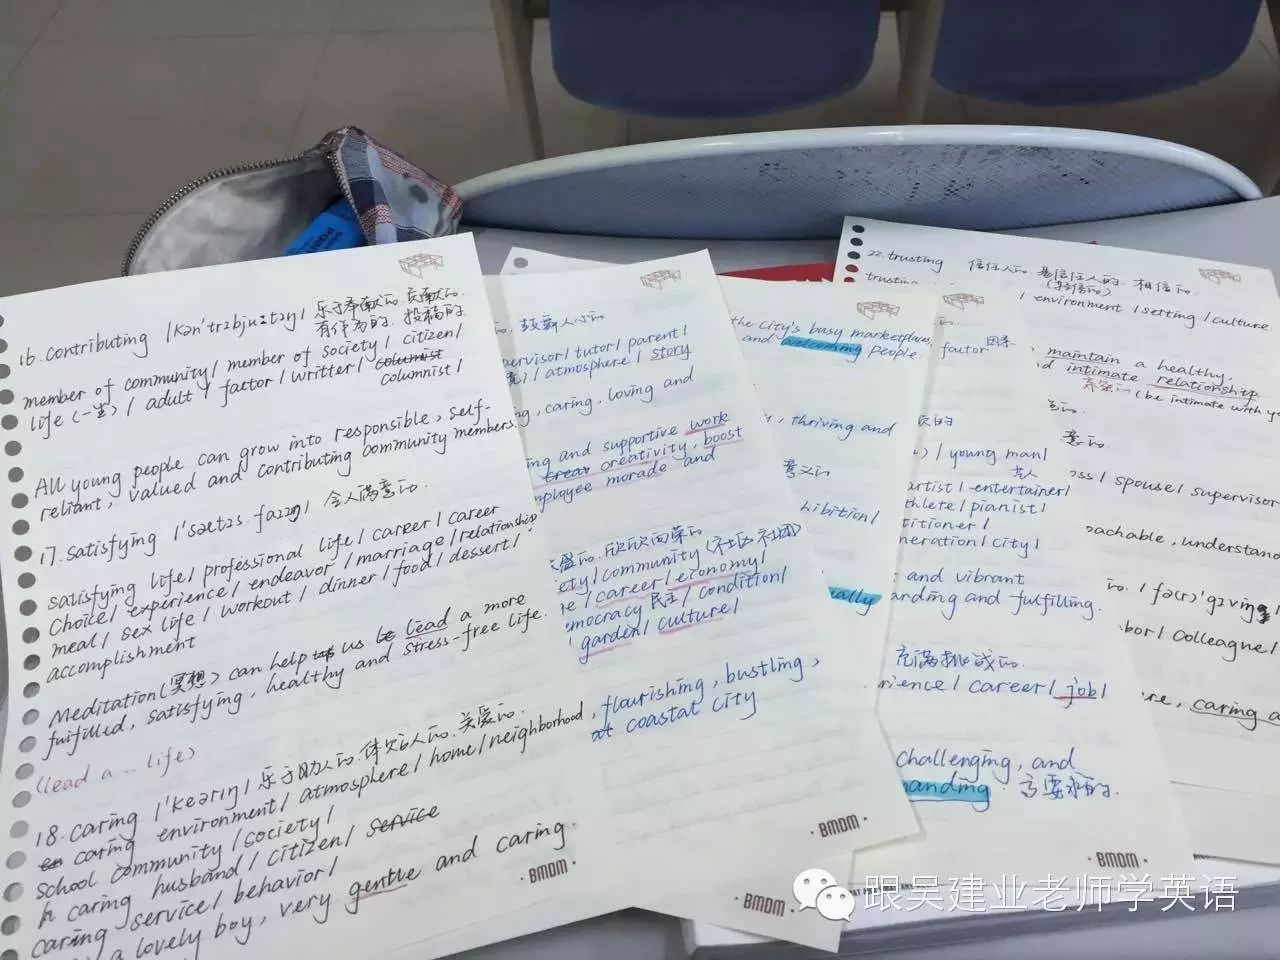 16. contributing /kən'trɪbju:tɪŋ/ 乐于奉献的. 贡献的.
有作为的. 投稿的
member of community/ member of society/ citizen/
life (一生) / adult / factor / writter / columnist
columnist /
All young people can grow into responsible, self-
reliant, valued and contributing community members.
17. satisfying /'sætɪs faɪɪŋ/ 令人满意的.
satisfying life/ professional life/ career/ career
choice/ experience/ endeavor/ marriage/ relationship
meal/ sex life/ workout/ dinner/ food/ dessert/
accomplishment
Meditation (冥想) can help us lead a more
fulfilled, satisfying, healthy and stress-free life.
(lead a .. life)
18. caring /'keərɪŋ/ 乐于助人的. 体贴人的. 关爱的.
caring environment/ atmosphere/ home/ neighborhood,
school community/ society/
caring husband/ citizen/ service
caring service/ behavior/
a lovely boy, very gentle and caring.
·BMDM·
鼓舞人心的
ervisor/ tutor/ parent/
/ atmosphere/ story
ng, caring, loving and
ing and supportive work
creativity, boost
mployee morade and
欣欣向荣的
iety/ community (社区. 社团)
re / career/ economy/
mocracy 民主/ condition/
garden/ culture/
flourishing, bustling,
at coastat city
·BMDM·
the city's busy marketplaces
and welcoming people.
, thriving and
意义的
hibition/
ially
BMDM
factor 因素
质的
/ young man/
artist/ entertainer/
thlete/ pianist/
titioner/
neration/ city/
and vibrant
arding and fulfilling.
充满挑战的.
rience/ career/ job/
challenging, and
manding. 高要求的.
·BMDM·
22. trusting 信任人的. 易信任人的. 相信的.
(轻信的)
trusting
/ environment / setting / culture.
maintain a healthy,
d intimate relationship
亲密的 (be intimate with yo
意的.
oss/ spouse/ supervisor
oachable, understand
的. / fə(r)'gɪvɪŋ
bor/ colleague/
re, caring a
跟吴建业老师学英语